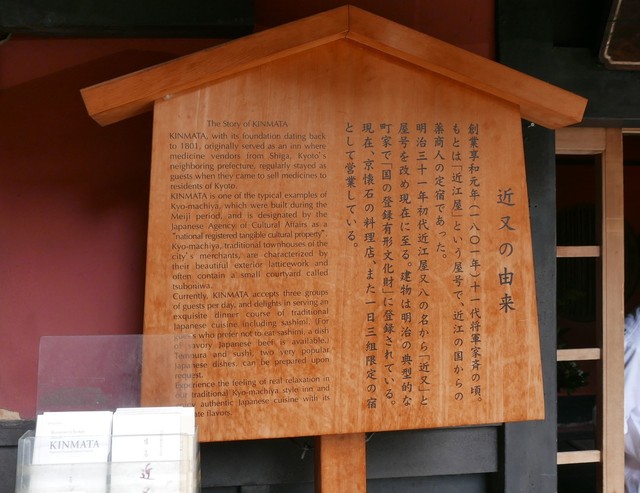 The Story of KINMATA
KINMATA, with its foundation dating back
to 1801, originally served as an inn where
medicine vendors from Shiga, Kyoto's
neighboring prefecture, regularly stayed as
guests when they came to sell medicines to
residents of Kyoto.
KINMATA is one of the typical examples of
Kyo-machiya, which were built during the
Meiji period, and is designated by the
Japanese Agency of Cultural Affairs as a
"national registered tangible cultural property".
Kyo-machiya, traditional townhouses of the
city's merchants, are characterized by
their beautiful exterior latticework and
often contain a small courtyard called
tsuboniwa.
Currently, KINMATA accepts three groups
of guests per day, and delights in serving an
exquisite dinner course of traditional
Japanese cuisine including sashimi. (For
who prefer not to eat sashimi, a dish
savory Japanese beef is available.)
Tempura and sushi, two very popular
Japanese dishes, can be prepared upon
request.
Experience the feeling of real relaxation in
traditional Kyo-machiya style inn and
authentic Japanese cuisine with its
flavors.
近又の由来
創業享和元年(一八〇一年)十一代将軍家斉の頃。
もとは「近江屋」という屋号で、近江の国からの
薬商人の定宿であった。
明治三十一年初代近江屋又八の名から「近又」と
屋号を改め現在に至る。建物は明治の典型的な
町家で「国の登録有形文化財」に登録されている。
現在、京懐石の料理店、また一日三組限定の宿
として営業している。
KINMATA
近又